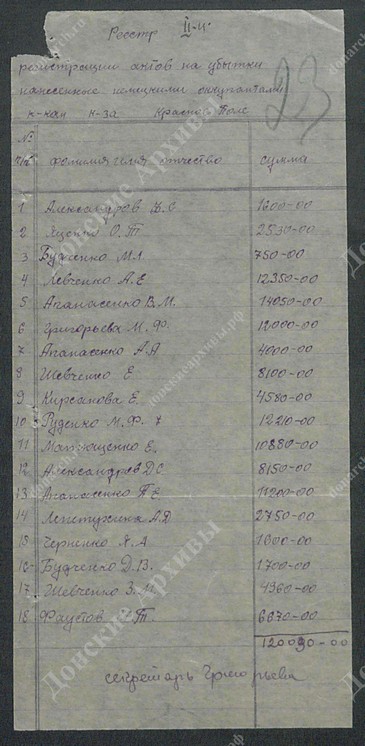 Реестр II-й
регистрации актов на убытки
нанесенные немецкими оккупантами
к-кам к-за Красное Поле
23
№ п/п фамилия имя отчество сумма
1 Александров В.С 1600-00
2 Яценко О.Т 2530-00
3 Будченко М.И. 750-00
4 Левченко А.Е 12350-00
5 Апанасенко В.М. 14050-00
6 Григорьева М.Ф. 12000-00
7 Апанасенко А.А 4000-00
8 Шевченко Е 8100-00
9 Кирсанова Е. 4580-00
10 Руденко М.Ф. 7 12210-00
11 Матющенко Е. 10880-00
12 Александров Д.С. 8150-00
13 Апанасенко Т.Е. 11200-00
14 А.Д 2750-00
15 Черненко А.А 1800-00
16 Будченко Д.В. 1700-00
17 Шевченко З.М. 4360-00
18 Фаустов Т. 6670-00
120090-00
секретарь Григорьева
Донские архивы
донскиеархивы.рф
donarch.ru